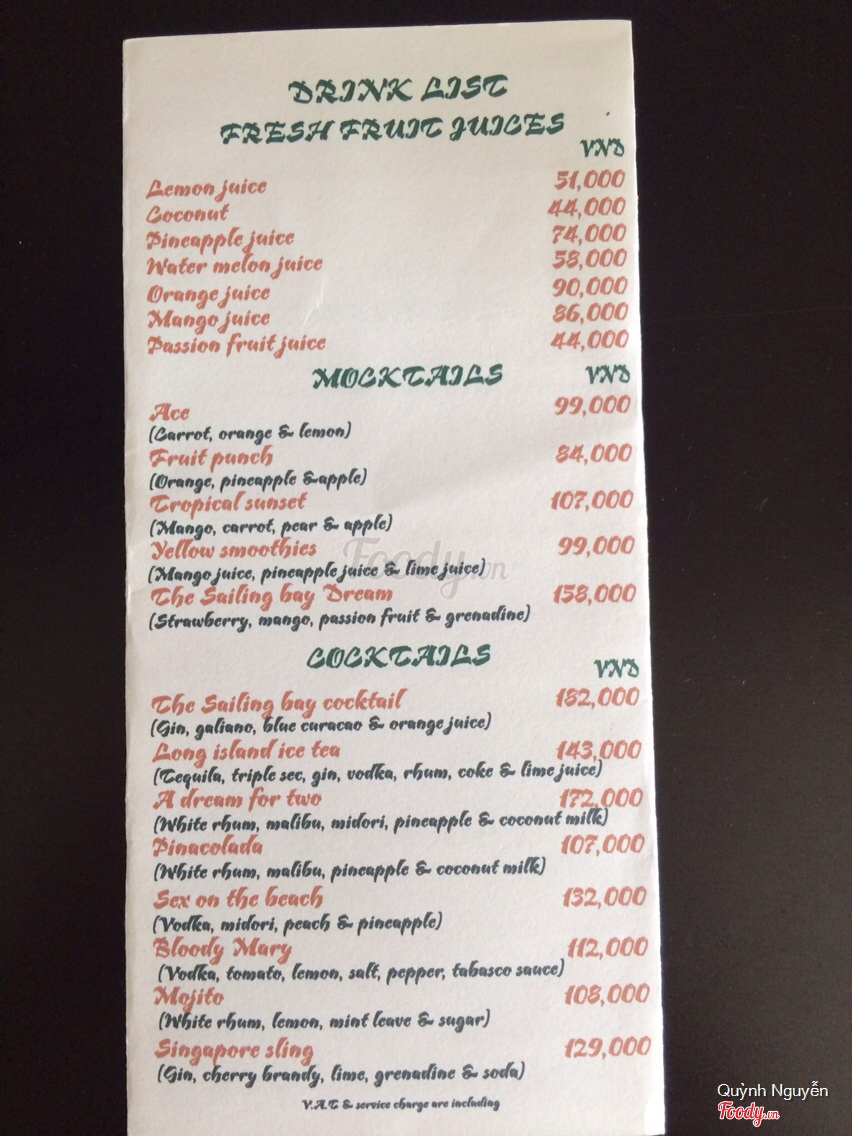 DRINK LIST
FRESH FRUIT JUICES
VND
Lemon juice 51,000
Coconut 44,000
Pineapple juice 74,000
Water melon juice 58,000
Orange juice 90,000
Mango juice 86,000
Passion fruit juice 44,000
MOCKTAILS VND
Ace 99,000
(Carrot, orange & lemon)
Fruit punch 84,000
(Orange, pineapple &apple)
Tropical sunset 107,000
(Mango, carrot, pear & apple)
Yellow smoothies 99,000
(Mango juice, pineapple juice & lime juice)
The Sailing bay Dream 158,000
(Strawberry, mango, passion fruit & grenadine)
COCKTAILS VND
The Sailing bay cocktail 182,000
(Gin, galiano, blue curacao & orange juice)
Long island ice tea 143,000
(Tequila, triple sec, gin, vodka, rhum, coke & lime juice)
A dream for two 172,000
(White rhum, malibu, midori, pineapple & coconut milk)
Pinacolada 107,000
(White rhum, malibu, pineapple & coconut milk)
Sex on the beach 132,000
(Vodka, midori, peach & pineapple)
Bloody Mary 112,000
(Vodka, tomato, lemon, salt, pepper, tabasco sauce)
Mojito 108,000
(White rhum, lemon, mint leave & sugar)
Singapore sling 129,000
(Gin, cherry brandy, lime, grenadine & soda)
V.A.T & service charge are including
Foody.vn
Quỳnh Nguyễn
Foody.vn